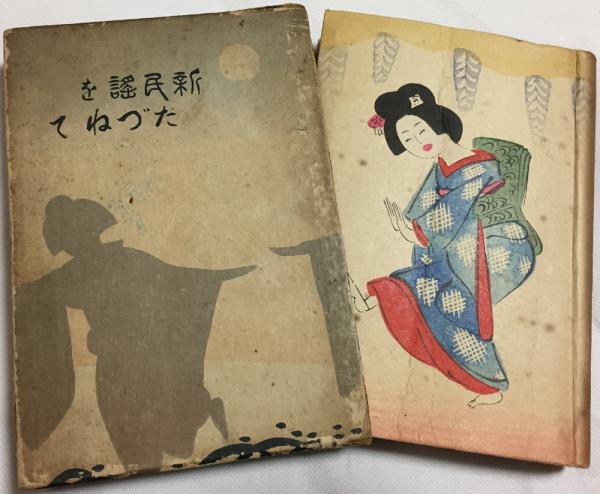 新民謡を
たづねて